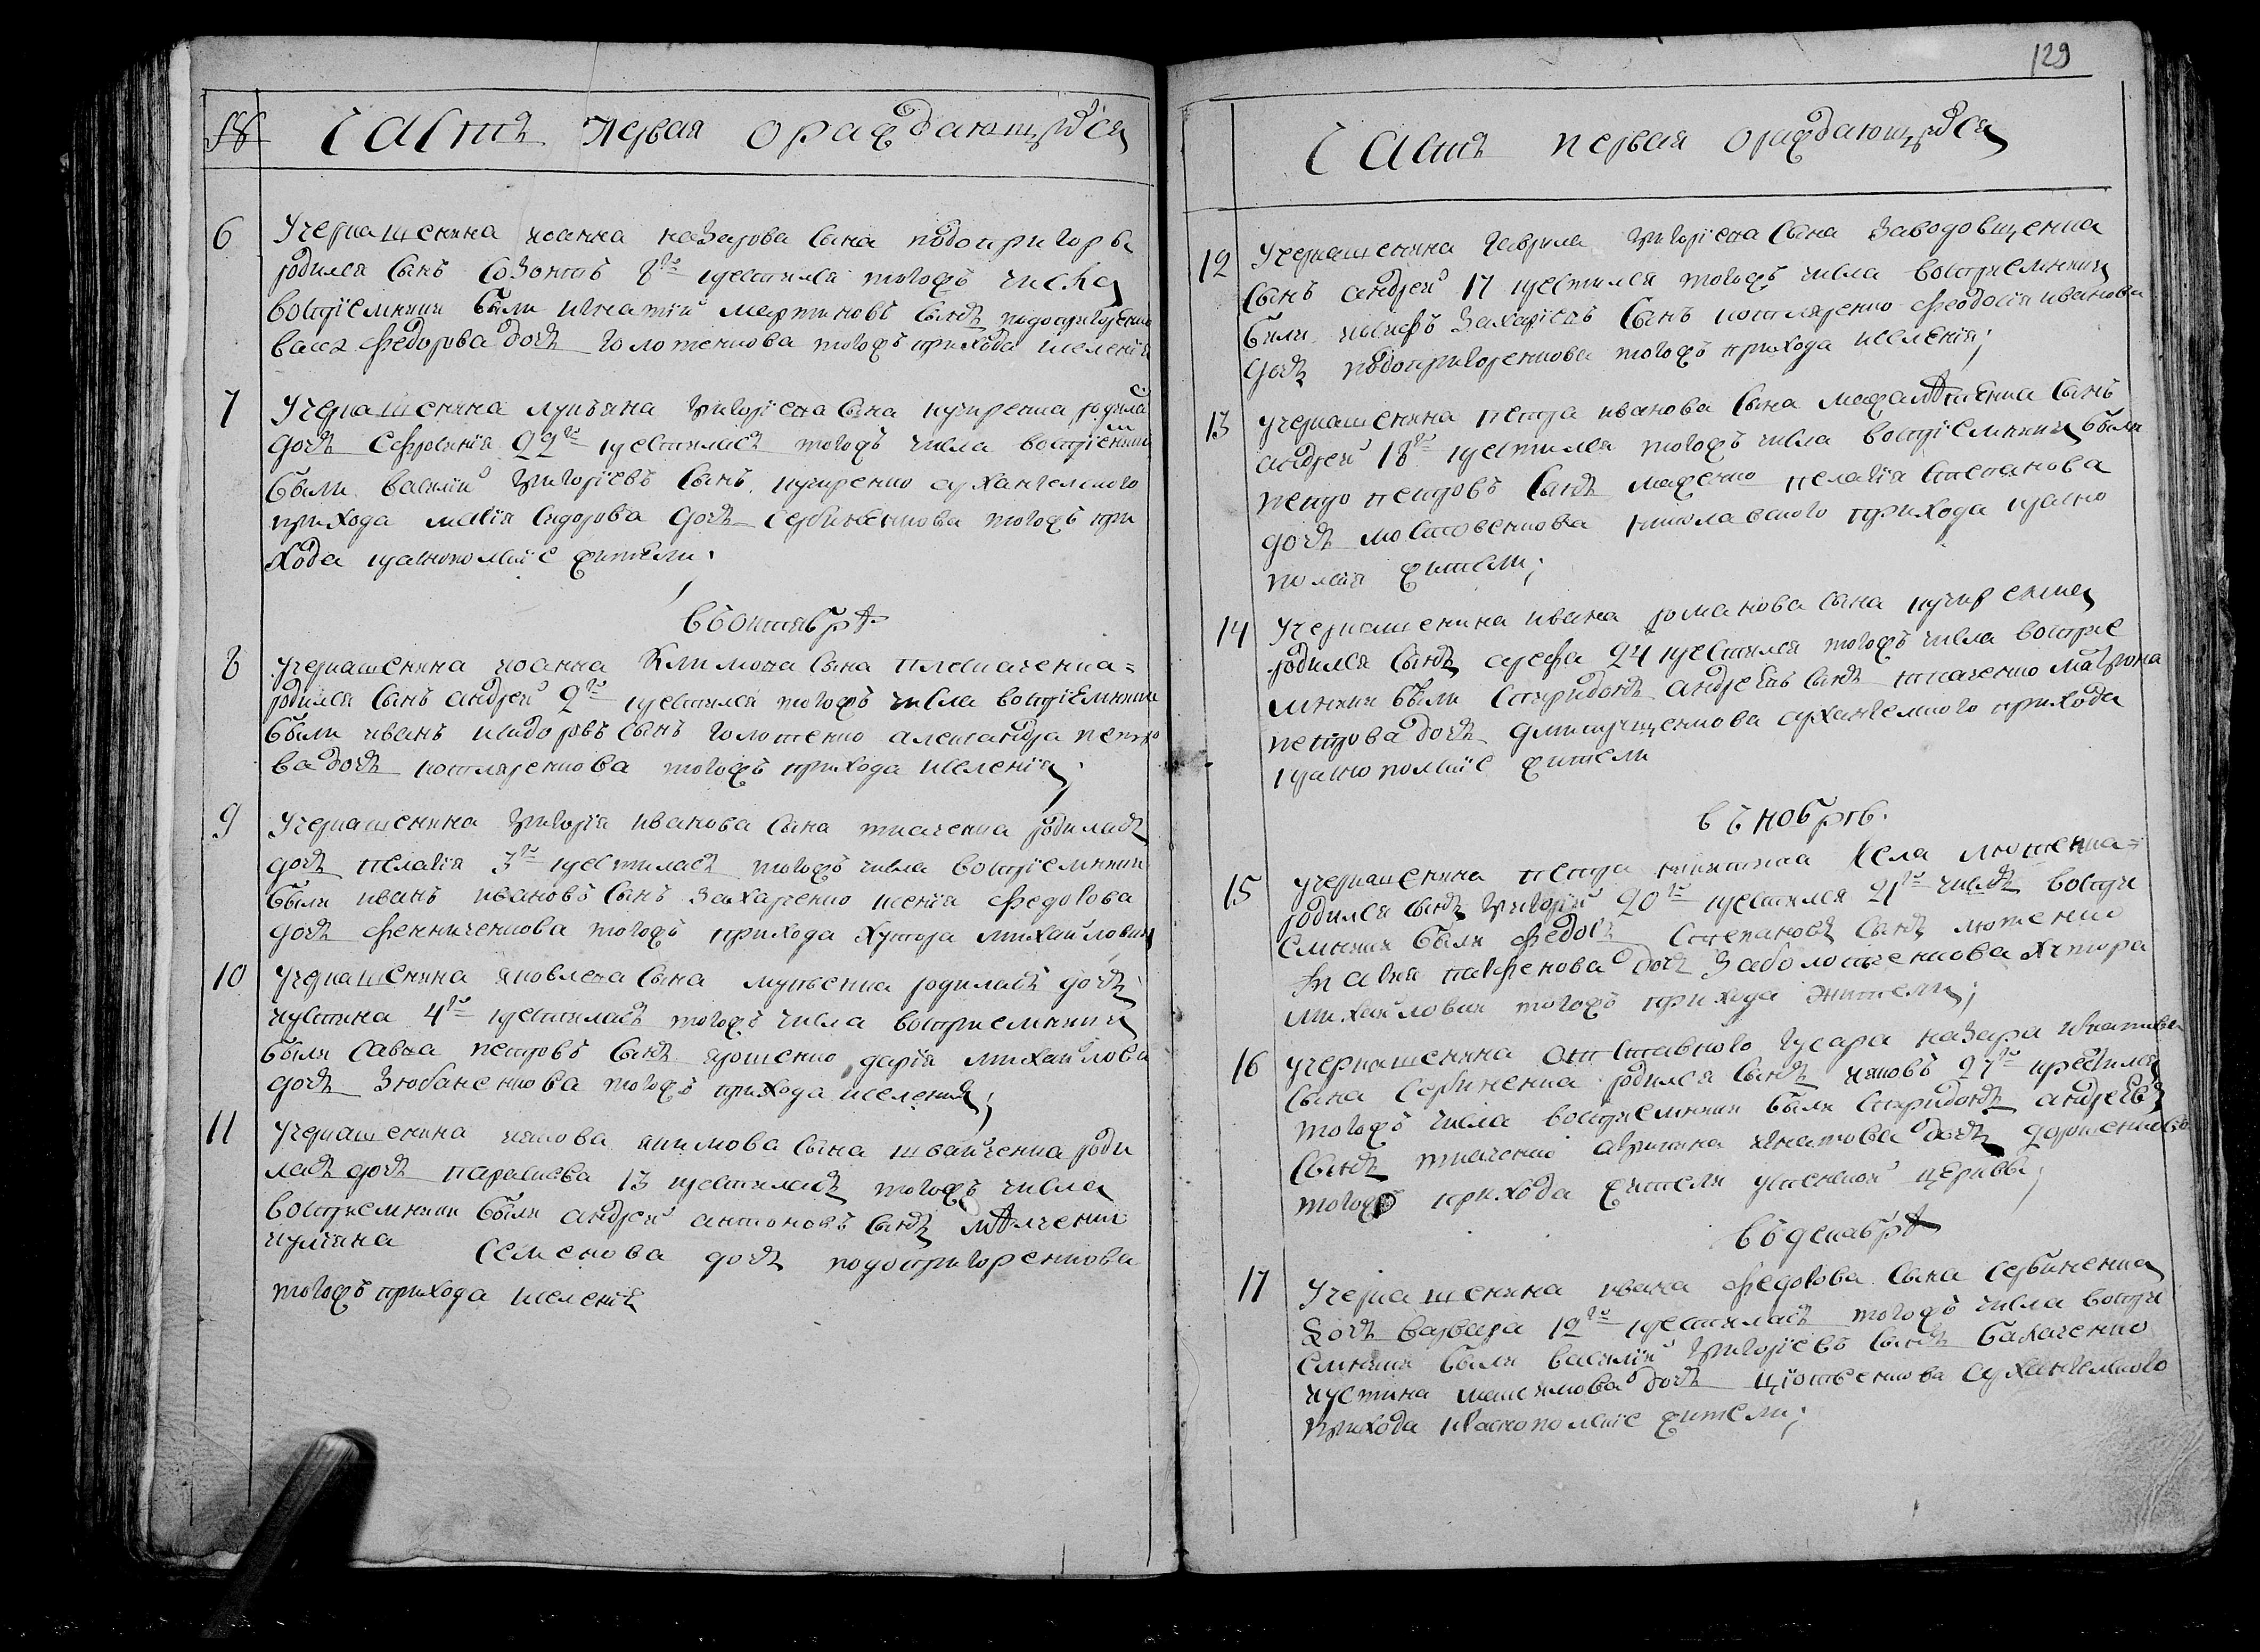 часть первая ораждающихся
6 Учеркашенина иоанна назарова сына подопригоры
родился сынъ созонтъ 8го крестился тогожъ числа
восприемники были игнатий мартиновъ сынъ подопригоренко
васса федорова дочь голотенкова тогожъ прихода иселения
7 Учеркашенина лукьяна григориева сына кучеренка родилась
дочь ефросиния 22го крестилась тогожъ числа восприемники
были василий григориевъ сынъ кучеренко архангелского
прихода мария сидорова дочь сербиненкова тогожъ при
хода краснополские жители.
въ октябрѣ
8 учеркашенина иоанна климова сына плескаченка=
родился сынъ андрей 2го крестился тогожъ числа восприемники
были иванъ исидоровъ сынъ голотенко александра петро
ва дочь котляренкова тогожъ прихода иселения;
9 Учеркашенина григория иванова сына ткаченка родилась
дочь пелагия 3го крестилась тогожъ числа восприемники
были иванъ ивановъ сынъ захарченко ксения федорова
дочь тогожъ прихода хутора михайловки
10 Учеркашенина яковлева сына лупсенка родилась дочь
иустина 4го крестилась тогожъ числа восприемники
были савва петровъ сынъ ярошенко дария михайлова
дочь зюбаненкова тогожъ прихода иселения;
11 Учеркашенина иякова якимова сына швайченка роди
лась дочь параскева 13 крестилась тогожъ числа
восприемники были андрей антоновъ сынъ
иулиана семенова дочь подопригоренкова
тогожъ прихода иселения
129
часть первая ораждающихся
12 Учеркашенина гаврила григориева сына заводовщенка
сынъ андрей 17 крестился тогожъ числа восприемники
были иосифъ захариевъ сынъ котляренко феодосия иванова
дочь подопригоренкова тогожъ прихода иселения;
13 учеркашенина петра иванова сына сынъ
андрей 18го крестился тогожъ числа восприемники были
петро петровъ сынъ маженко пелагия степанова
дочь мостовенкова николаевского прихода красно
полския жители;
14 Учеркашенина ивана романова сына кучеренка
родился сынъ арефа 24 крестился тогожъ числа восприе
мники были спиридонъ андреевъ сынъ ткаченко матрона
петрова дочь дмитрущенкова архангелского прихода
краснополские жители
въ ноябрѣ.
15 учеркашенина петра никитина лютенка=
родился сынъ григорий 20го крестился 21го числа воспри
емники были федосъ степановъ сынъ лютенко
парфенова дочь заболотченкова хутора
михайловки тогожъ прихода жители;
16 учеркашенина отставного гусара назара игнатиева
сына сербиненка родился сынъ ияковъ 27го крестился
тогожъ числа восприемники были спиридонъ андреевъ
сынъ ткаченко агрипина игнатова дочь дорошенкова
тогожъ прихода жители успенской церкви;
въ декабрѣ
17 Учеркашенина ивана федорова сына сербиненка
дочь варвара 12го крестилась тогожъ числа воспри
емники были василий григориевъ сынъ бакаченко
иустина максимова дочь архангелского
прихода краснополские жители;